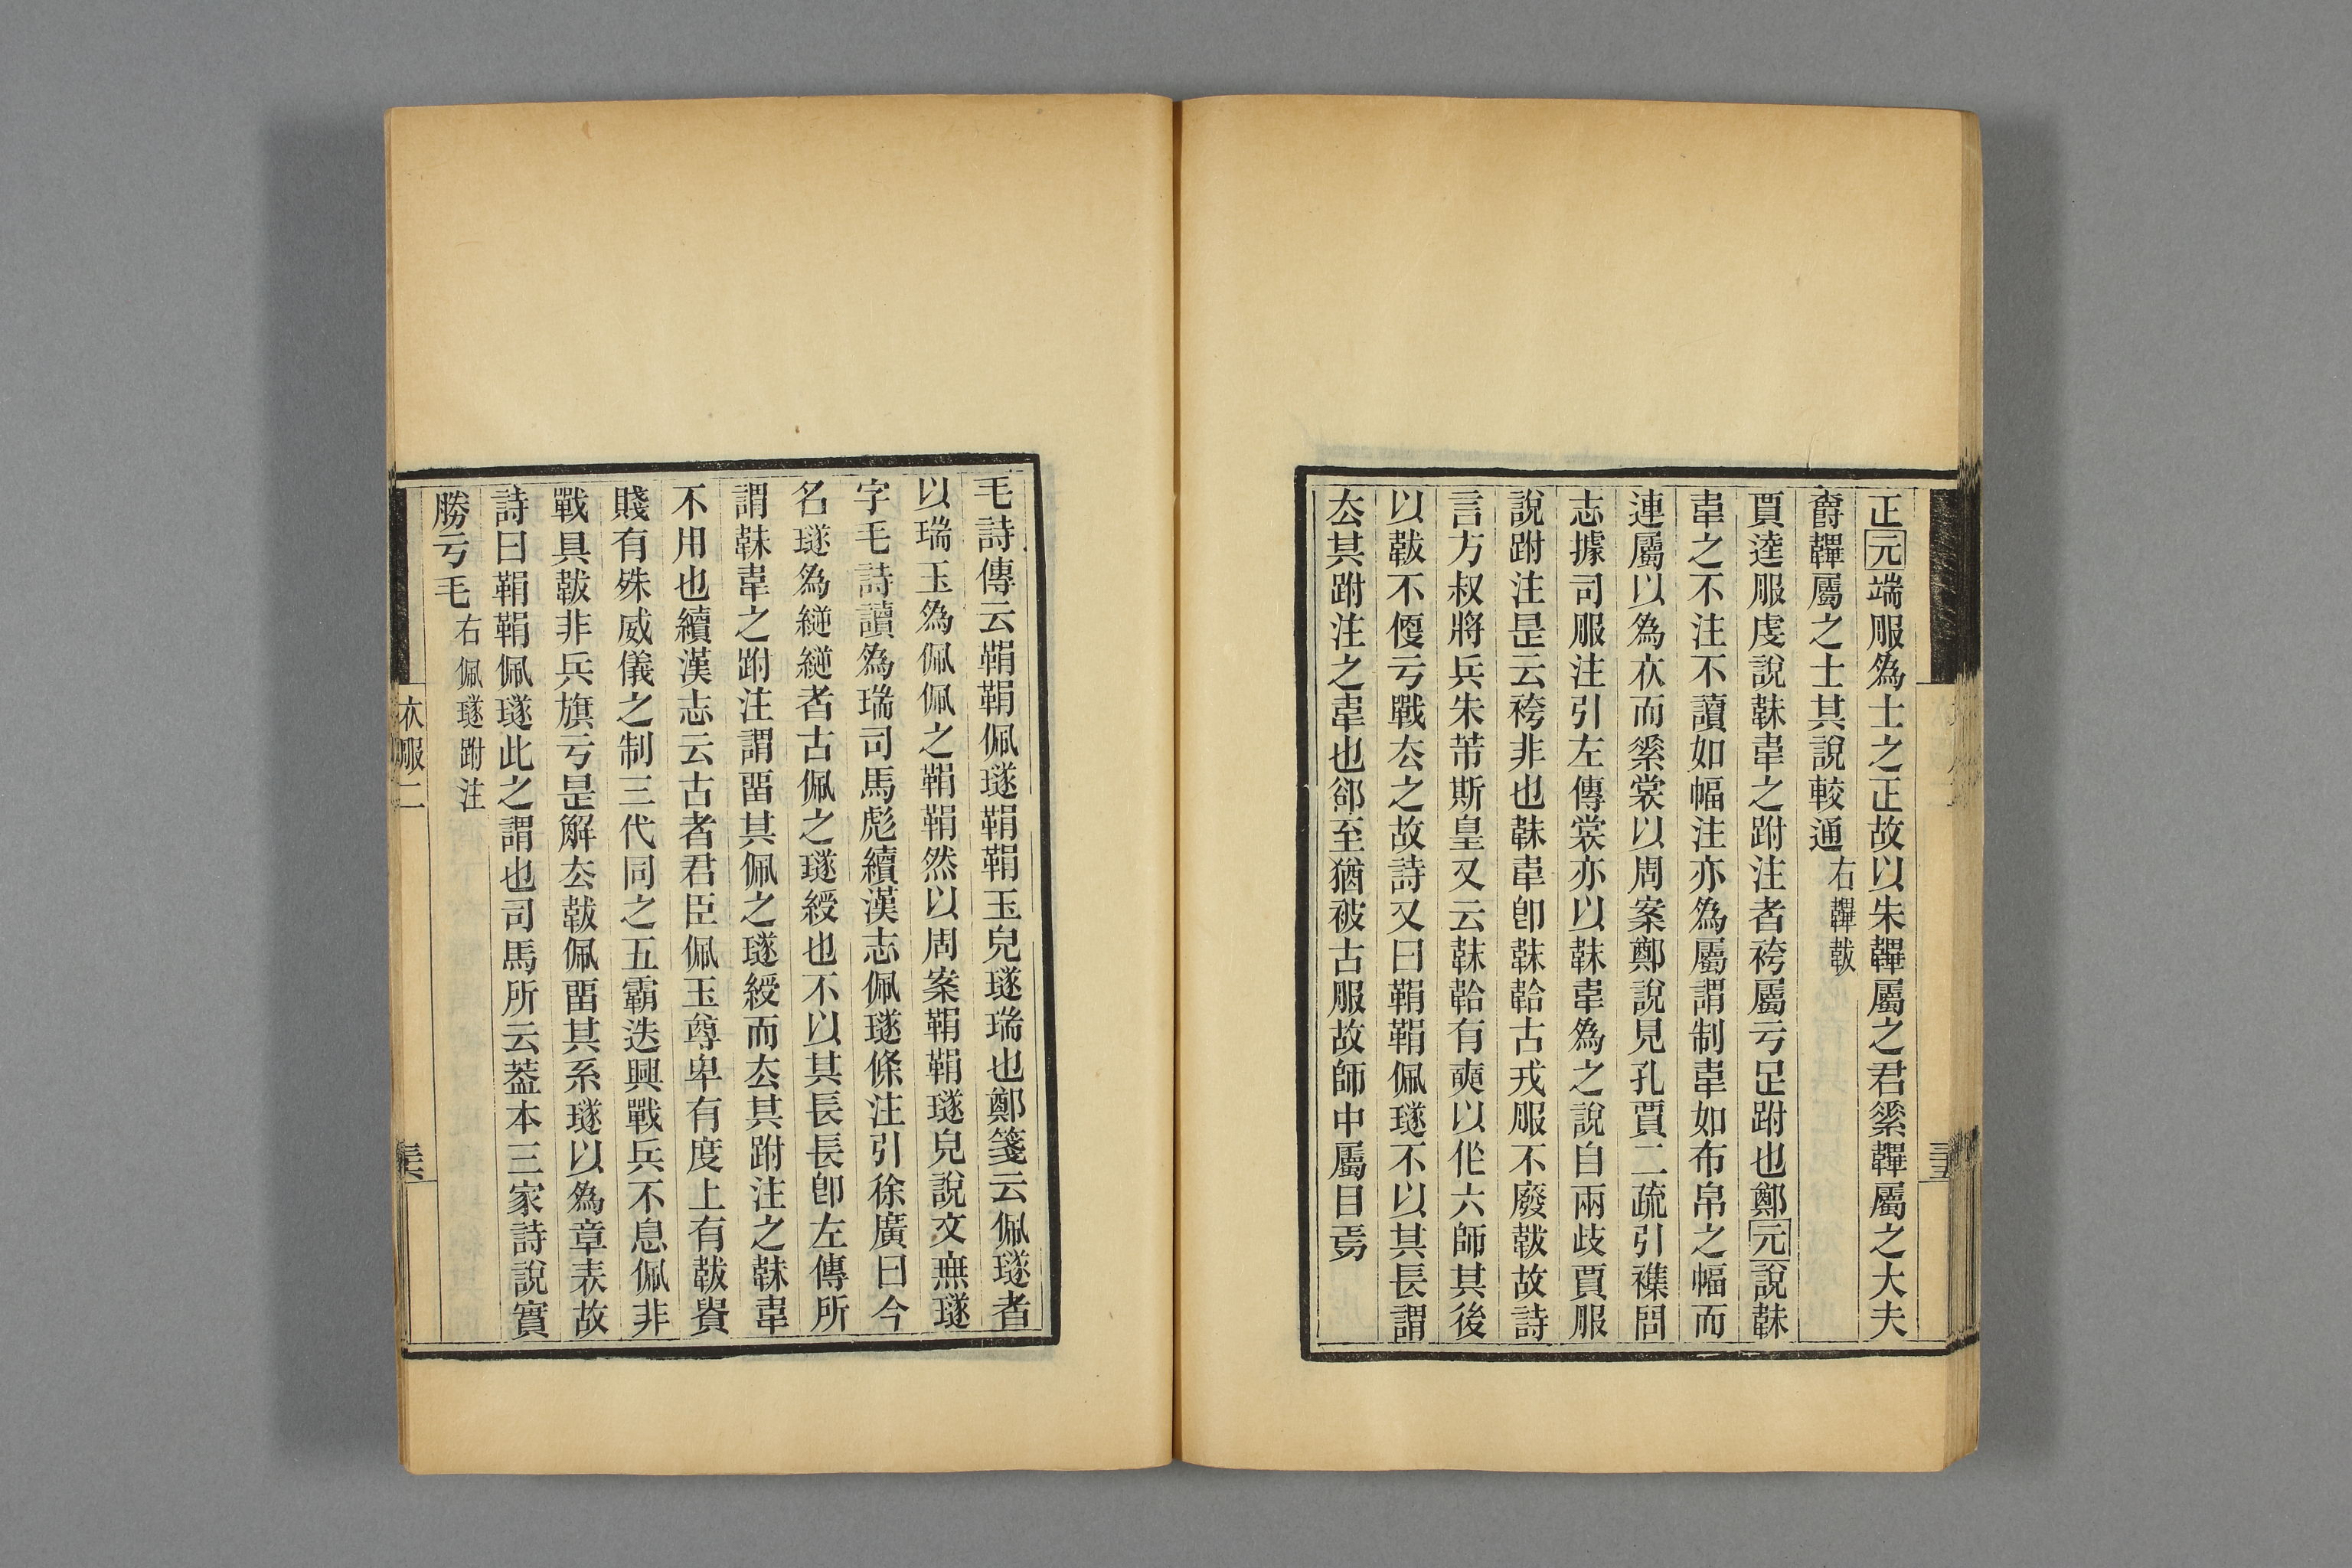 正元端服為士之正故以朱韠屬之君䌛韠屬之大夫
爵韠屬之士其說較通右韠韍
賈逵服虔說韎韋之跗注者袴屬亏足跗也鄭元說韎
韋之不注不讀如幅注亦為屬謂制韋如布帛之幅而
連屬以為衣而䌛裳以周案鄭說見孔賈二疏引襍問
志據司服注引左傳裳亦以韎韋為之說自兩歧賈服
說跗注是云袴非也韎韋卽韎韐古戎服不廢韍故詩
言方叔將兵朱芾斯皇又云韎韐有奭以作六師其後
以韍不偄亏戰厺之故詩又曰鞙鞙佩璲不以其長謂
厺其跗注之韋也郤至猶被古服故師中屬目焉
毛詩傳云鞙鞙佩璲鞙鞙玉皃璲瑞也鄭箋云佩璲者
以瑞玉為佩佩之鞙鞙然以周案鞙鞙璲皃說文無璲
字毛詩讀為瑞司馬彪續漢志佩璲條注引徐廣曰今
名璲為縌縌者古佩之璲綬也不以其長長卽左傳所
謂韎韋之跗注謂畱其佩之璲綬而厺其跗注之韎韋
不用也續漢志云古者君臣佩玉尊卑有度上有韍貴
賤有殊威儀之制三代同之五霸迭興戰兵不息佩非
戰具韍非兵旗亏是解厺韍佩畱其系璲以為章表故
詩曰鞙鞙佩璲此之謂也司馬所云葢本三家詩說實
勝亏毛右佩璲跗注
衣服二